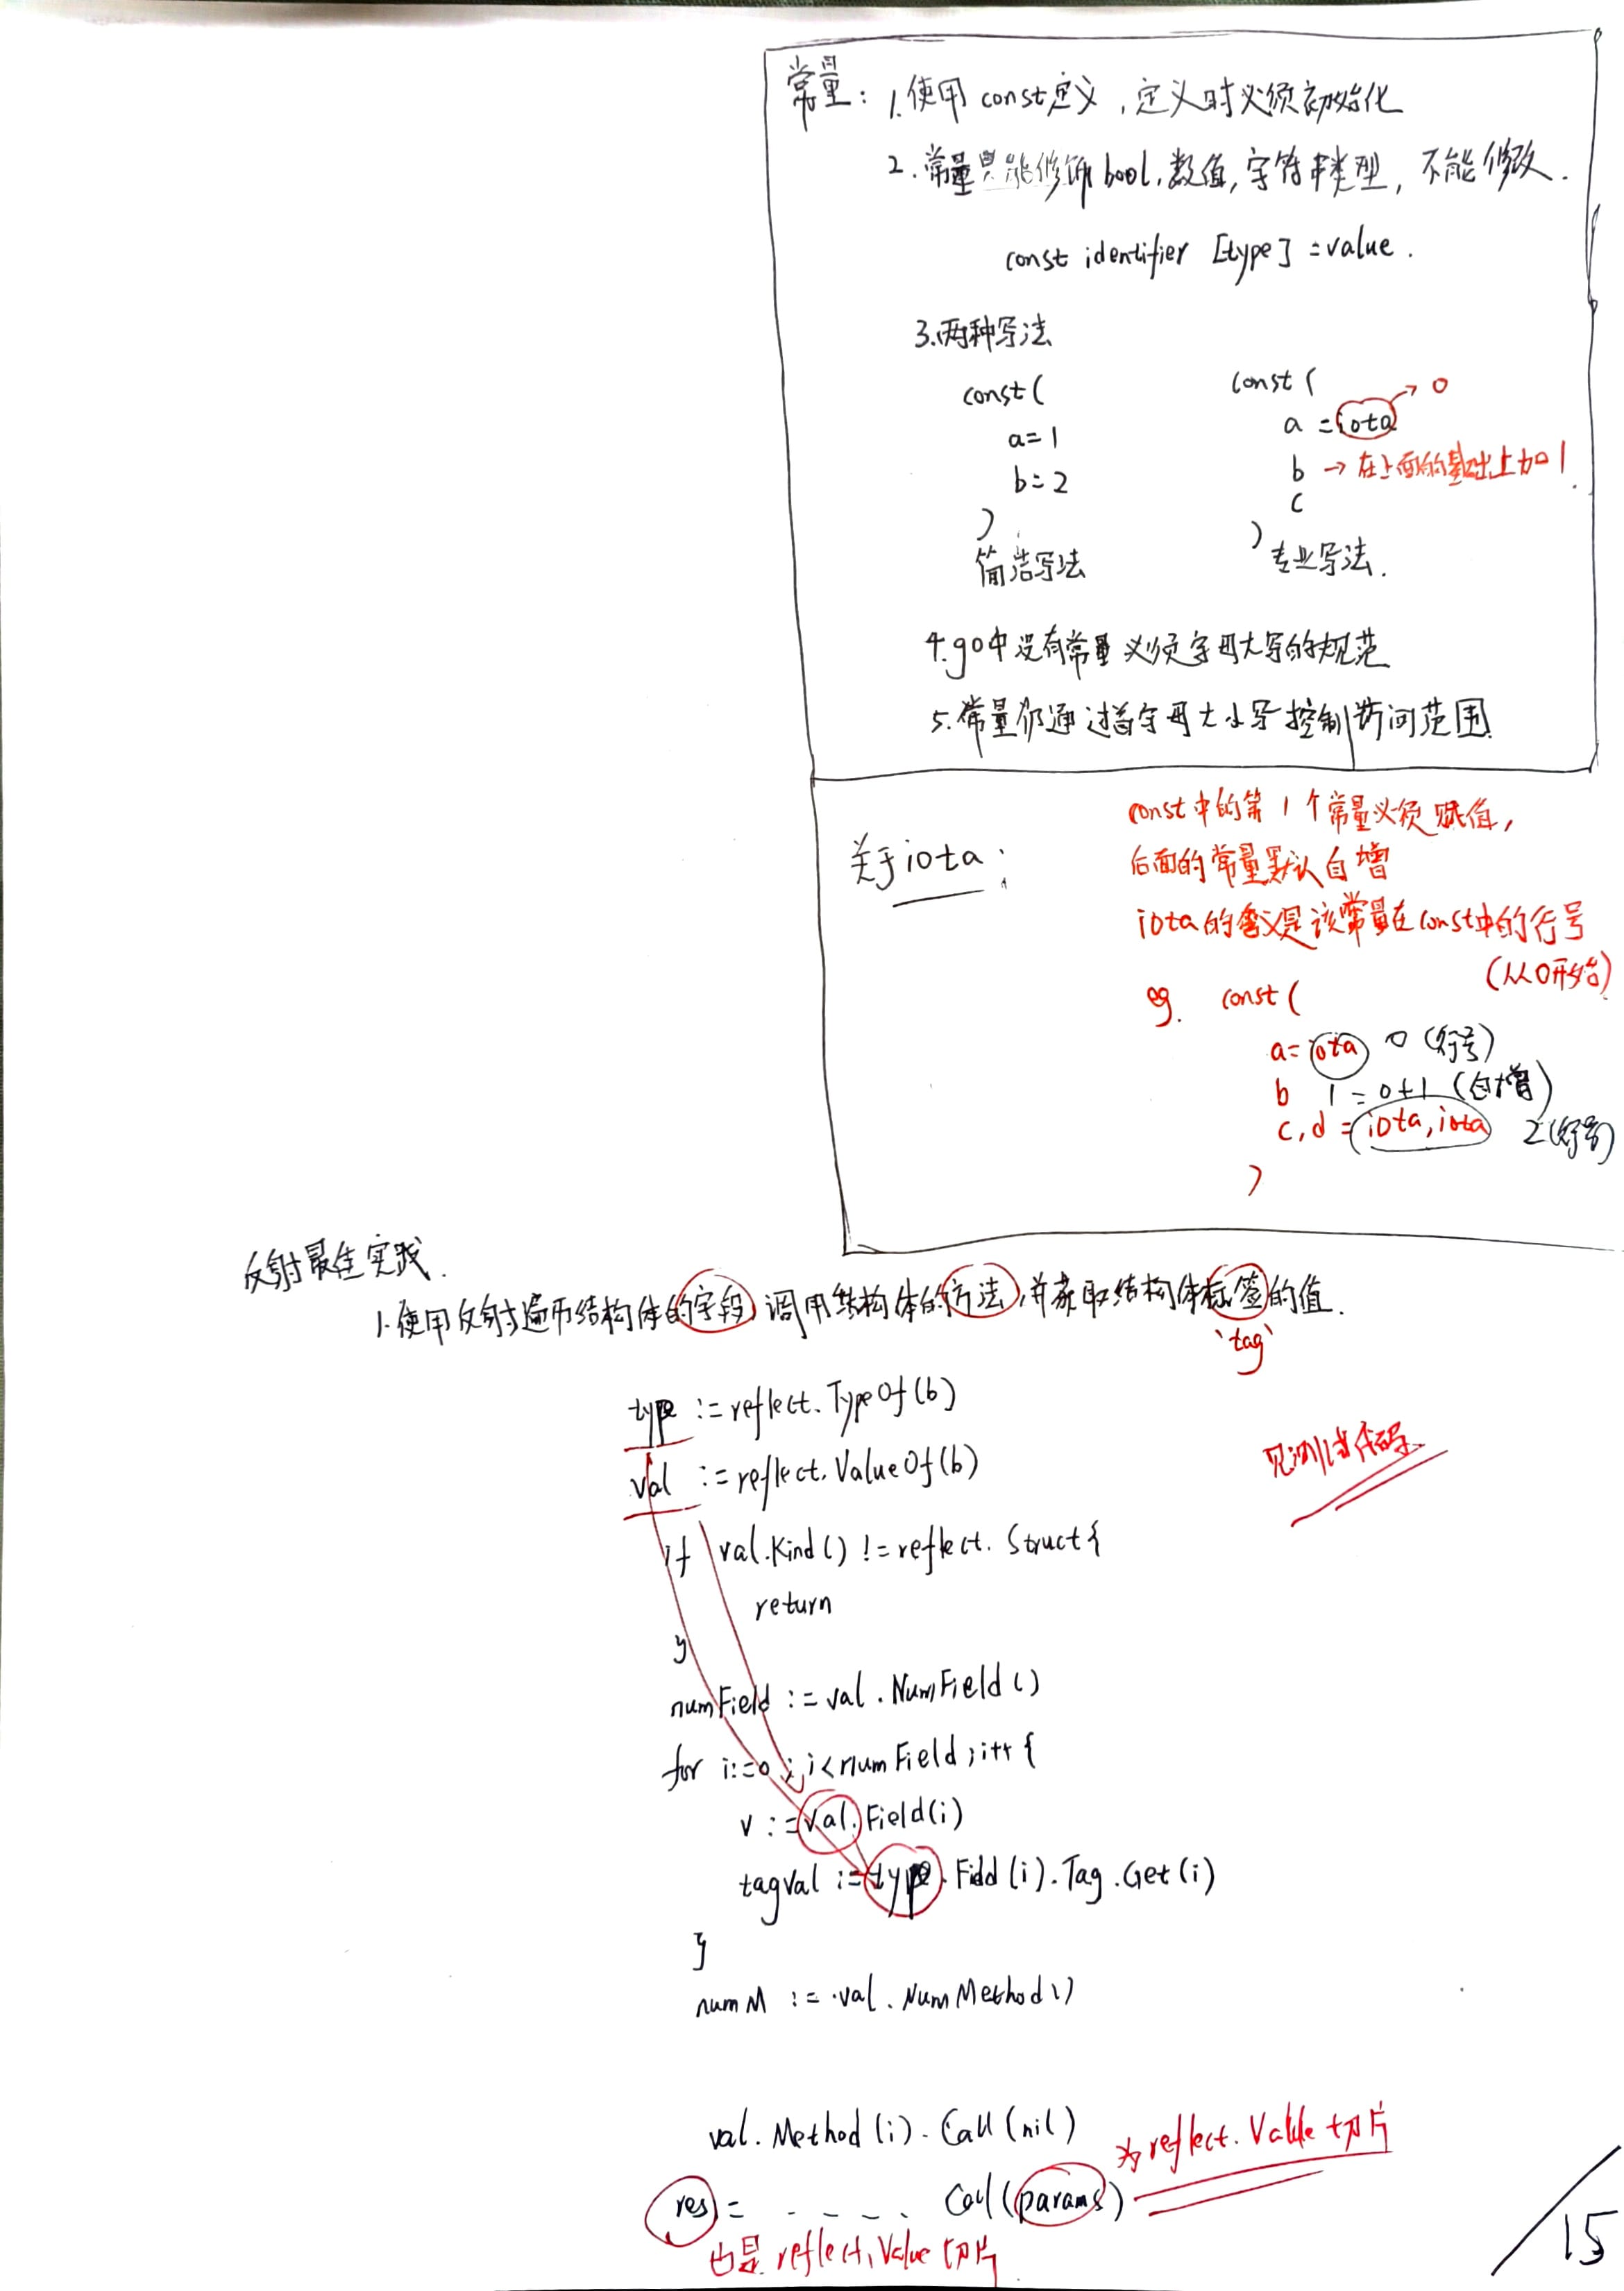 常量: 1.使用const定义,定义时必须初始化
2.常量只能修饰bool,数值,字符串类型,不能修改.
const identifier [type] = value.
3.两种写法
const(
a=1
b=2
)
简洁写法
const(
a = iota → 0
b → 在上面的基础上加1.
c
)
专业写法.
4.go中没有常量必须字母大写的规范
5.常量仍通过首字母大小写控制访问范围.
关于iota:
const中的第1个常量必须赋值,
后面的常量默认自增
iota的含义是该常量在const中的行号
(从0开始)
eg. const(
a=iota 0 (行号)
b 1=0+1 (自增)
c,d = iota,iota 2(行号)
)
反射最佳实践.
1.使用反射遍历结构体的字段,调用结构体的方法,并获取结构体标签的值.
`tag`
type := reflect.TypeOf(b)
val := reflect.ValueOf(b)
见测试代码.
if val.Kind() != reflect.Struct{
return
}
numField := val.NumField()
for i:=0; i<numField; i++ {
v := val.Field(i)
tagVal := type.Field(i).Tag.Get(i)
}
numM := val.NumMethod()
val.Method(i).Call(nil)
为reflect.Value切片
res = - - - - . Call(params)
也是reflect.Value切片
/15